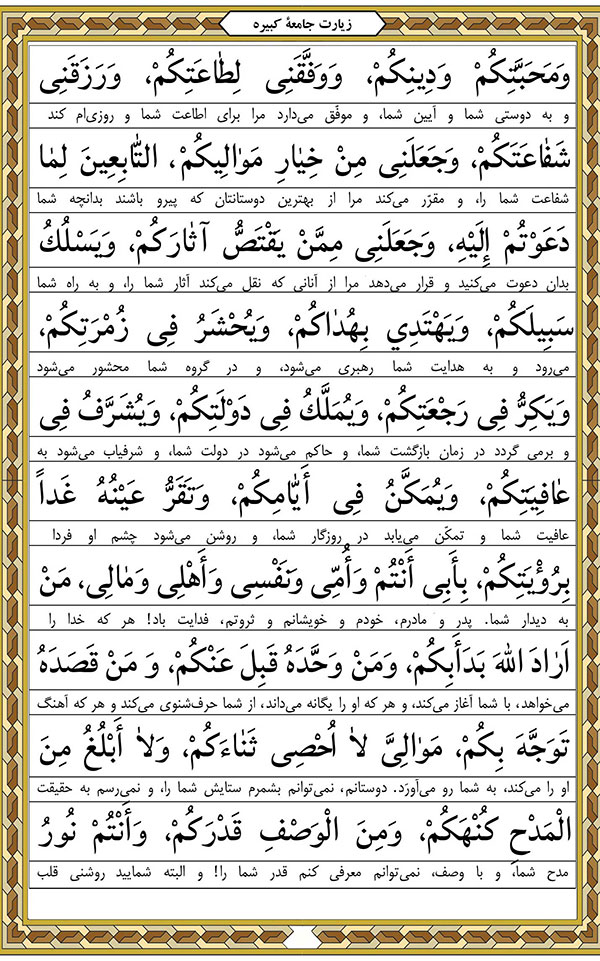 زیارت جامعهٔ کبیره
وَمَحَبَّتِكُمْ وَدِینِكُمْ، وَوَفَّقَنِی لِطٰاعَتِكُمْ، وَرَزَقَنِی
و به دوستی شما و آیین شما، و موفّق می‌دارد مرا برای اطاعت شما و روزی‌ام کند
شَفٰاعَتَكُمْ، وَجَعَلَنِی مِنْ خِیٰارِ مَوٰالِیكُمْ، التّٰابِعِینَ لِمٰا
شفاعت شما را، و مقرّر می‌کند مرا از بهترین دوستانتان که پیرو باشند بدانچه شما
دَعَوْتُمْ إِلَیْهِ، وَجَعَلَنِی مِمَّنْ یَقْتَصُّ آثٰارَكُمْ، وَیَسْلُكُ
بدان دعوت می‌کنید و قرار می‌دهد مرا از آنانی که نقل می‌کند آثار شما را، و به راه شما
سَبِیلَكُمْ، وَیَهْتَدِي بِهُدٰاكُمْ، وَیُحْشَرُ فِی زُمْرَتِكُمْ،
می‌رود و به هدایت شما رهبری می‌شود، و در گروه شما محشور می‌شود
وَیَكِرُّ فِی رَجْعَتِكُمْ، وَیُمَلَّكُ فِی دَوْلَتِكُمْ، وَیُشَرَّفُ فِی
و برمی گردد در زمان بازگشت شما، و حاکم می‌شود در دولت شما، و شرفیاب می‌شود به
عٰافِیَتِكُمْ، وَیُمَكَّنُ فِی أَیّٰامِكُمْ، وَتَقَرُّ عَیْنُهُ غَداً
عافیت شما و تمکّن می‌یابد در روزگار شما، و روشن می‌شود چشم او فردا
بِرُؤْیَتِكُمْ، بِأَبِی أَنْتُمْ وَأُمِّی وَنَفْسِی وَأَهْلِی وَمٰالِی، مَنْ
به دیدار شما. پدر و مادرم، خودم و خویشانم و ثروتم، فدایت باد! هر که خدا را
اَرٰادَ اللّٰهَ بَدَأَبِكُمْ، وَمَنْ وَحَّدَهُ قَبِلَ عَنْكُمْ، وَ مَنْ قَصَدَهُ
می‌خواهد، با شما آغاز می‌کند، و هر که او را یگانه می‌داند، از شما حرف‌شنوی می‌کند و هر که آهنگ
تَوَجَّهَ بِكُمْ، مَوٰالِیَّ لاٰ اُحْصِی ثَنٰاءَكُمْ، وَلاٰ أَبْلُغُ مِنَ
او را می‌کند، به شما رو می‌آورَد. دوستانم، نمی‌توانم بشمرم ستایش شما را، و نمی‌رسم به حقیقت
الْمَدْحِ كُنْهَكُمْ، وَمِنَ الْوَصْفِ قَدْرَكُمْ، وَأَنْتُمْ نُورُ
مدح شما، و با وصف، نمی‌توانم معرفی کنم قدر شما را! و البته شمایید روشنی قلب